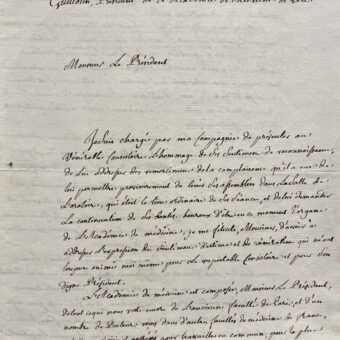 Guillotin, Président de l'Académie de médecine de Paris
Monsieur Le Président
Je suis chargé par ma Compagnie de présenter au
Vénérable Consistoire l'hommage de ses sentimens de reconnoissance,
de lui adresser ses remercimens de la complaisance qu'il a eue de
lui permettre provisoirement de tenir ses assemblées dans la Salle de
l'oratoire, qui étoit le lieu ordinaire de ses séances, et de lui demander
La continuation de ses bontés. heureux d'être en ce moment l'organe
de l'Académie de médecine, je me félicite, Monsieur, d'avoir à
adresser l'expression des sentimens d'estime et de vénération qui m'ont
toujours animé moi même pour Le respectable Consistoire et pour son
digne Président.
L'Académie de médecine est composée, Monsieur Le Président,
de tout ce qui nous reste encore de l'ancienne faculté de Paris, et d'un
nombre de Docteurs venus des autres facultés de médecine de France,
pour travailler en commun, pour la place